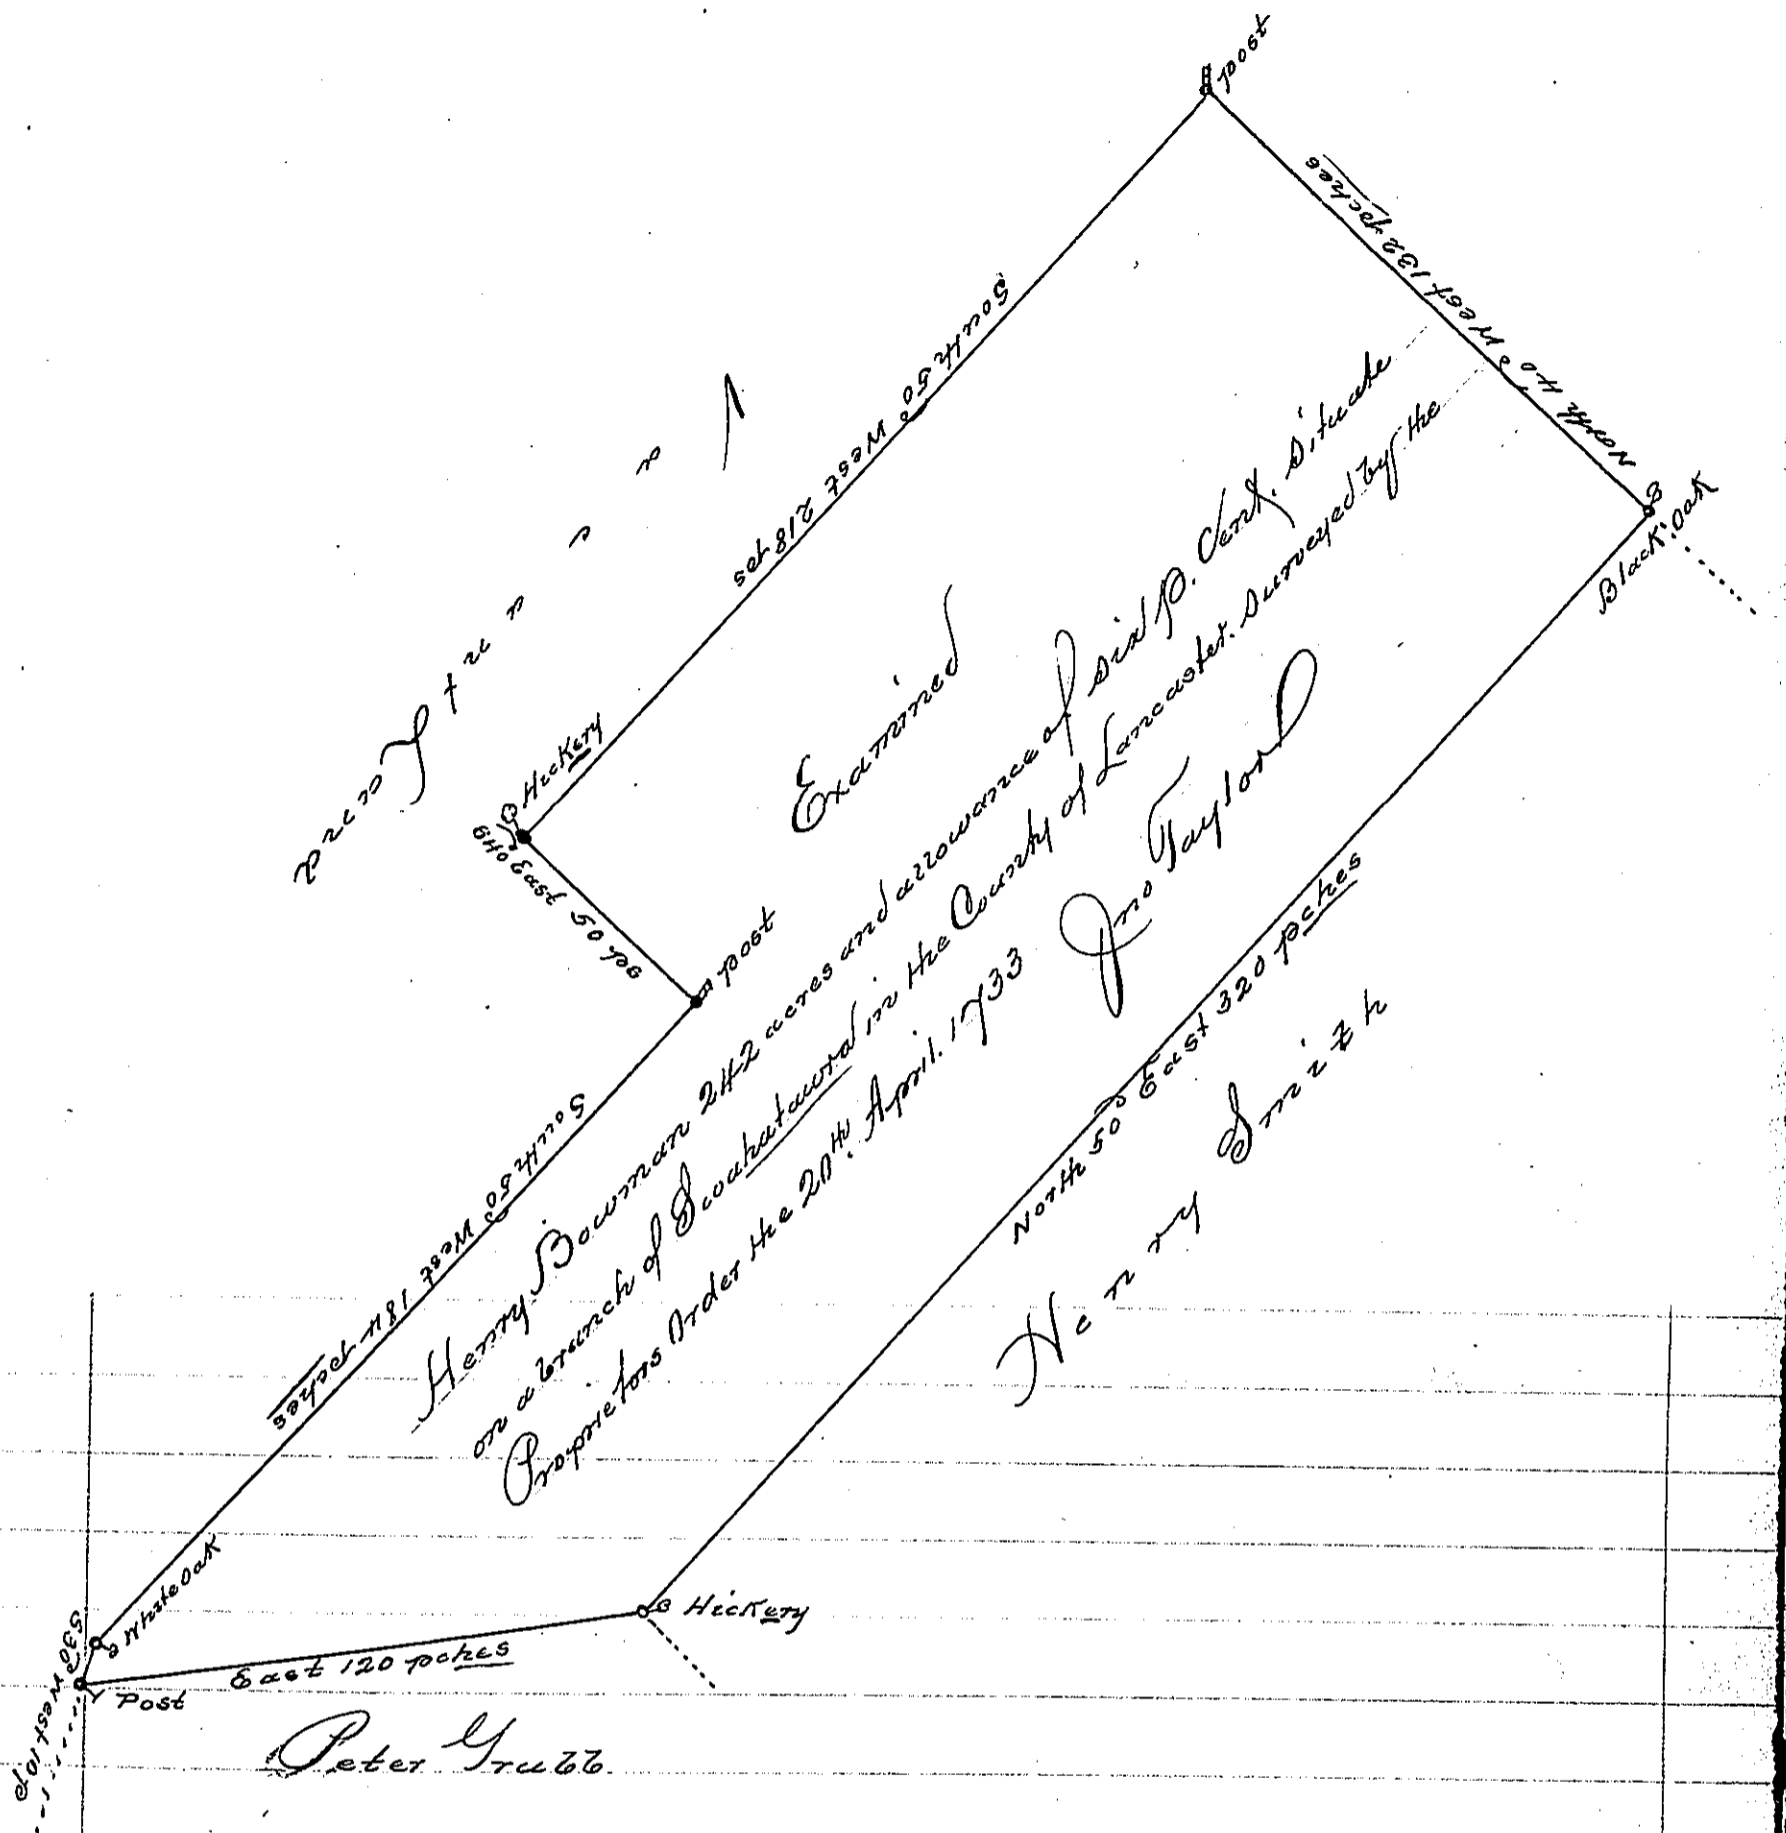 post
North 40° West 132 pches
South 50° West 218 ps
Vacant Land
Hickery
S 40 East 50 ps
post
Black Oak
Examined
Henry Bowman 242 acres and allowance of six p. Cent, situate
on a branch of Swahatawra in the County of Lancaster. Surveyed by the
Proprietors Order the 20th April. 1733 Jno Taylor
North 50° East 320 pches
Henry Smith
South 50° West 184 pches
White Oak
S 30° West 10 p
Post
East 120 pches
Hickery
Peter Grubb